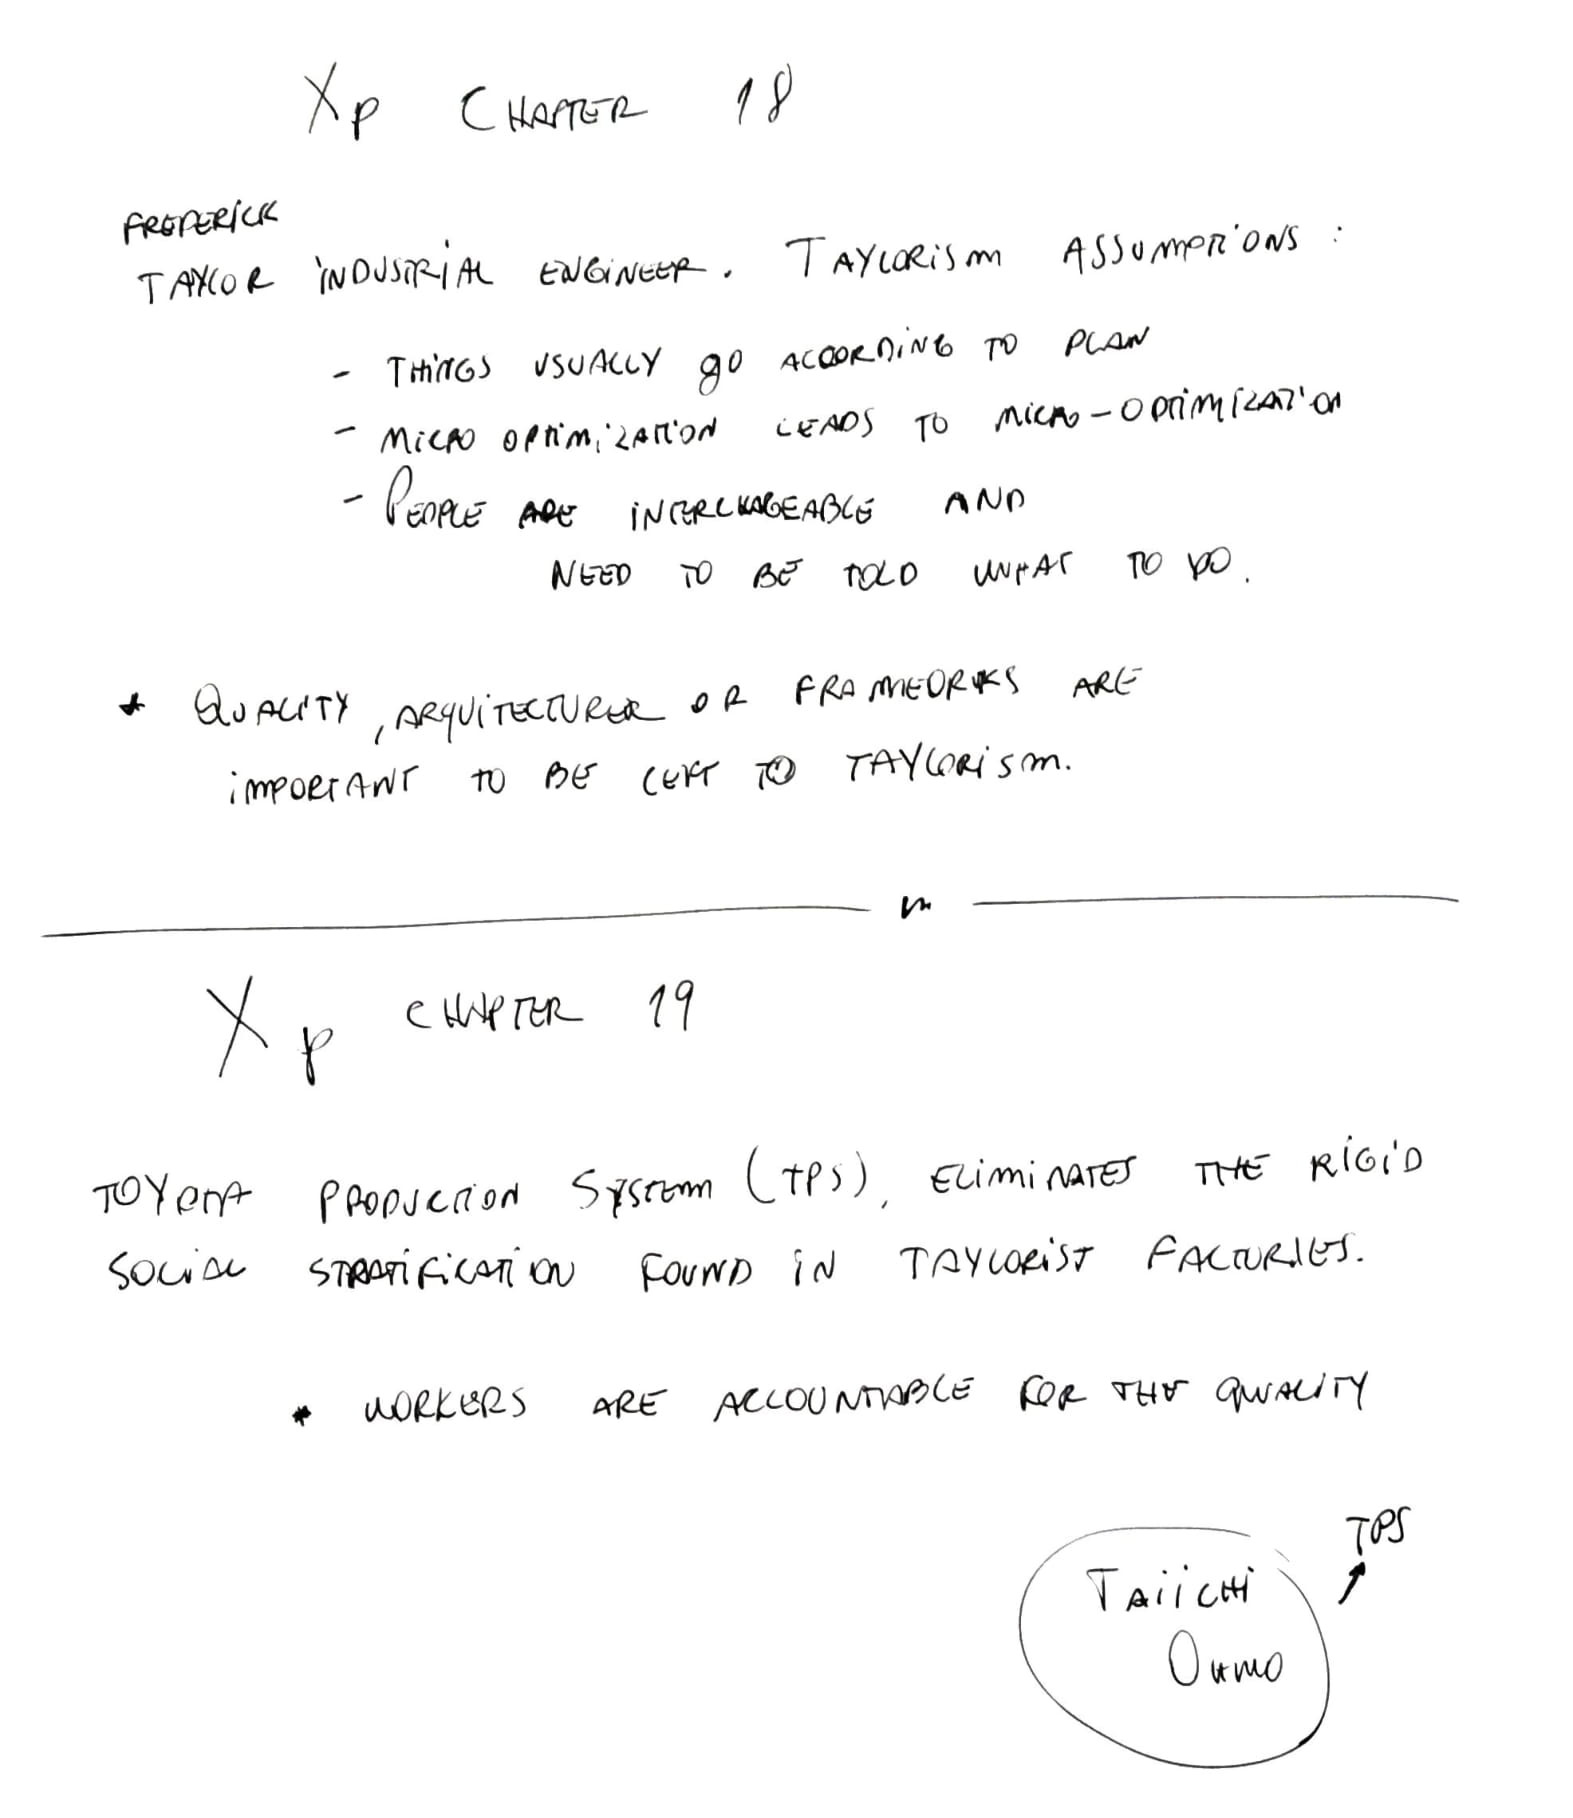 Xp CHAPTER 18
FREDERICK
TAYLOR INDUSTRIAL ENGINEER. TAYLORISM ASSUMPTIONS:
- THINGS USUALLY GO ACCORDING TO PLAN
- MICRO OPTIMIZATION LEADS TO MICRO-OPTIMIZATION
- PEOPLE ARE INTERCHAGEABLE AND
NEED TO BE TOLD WHAT TO DO.
* QUALITY, ARQUITECTURER OR FRAMEORKS ARE
IMPORTANT TO BE LEFT TO TAYLORISM.
Xp CHAPTER 19
TOYOTA PRODUCTION SYSTEM (TPS), ELIMINATES THE RIGID
SOCIAL STRATIFICATION FOUND IN TAYLORIST FACTORIES.
* WORKERS ARE ACCOUNTABLE FOR THE QUALITY
TPS
TAIICHI
OHNO